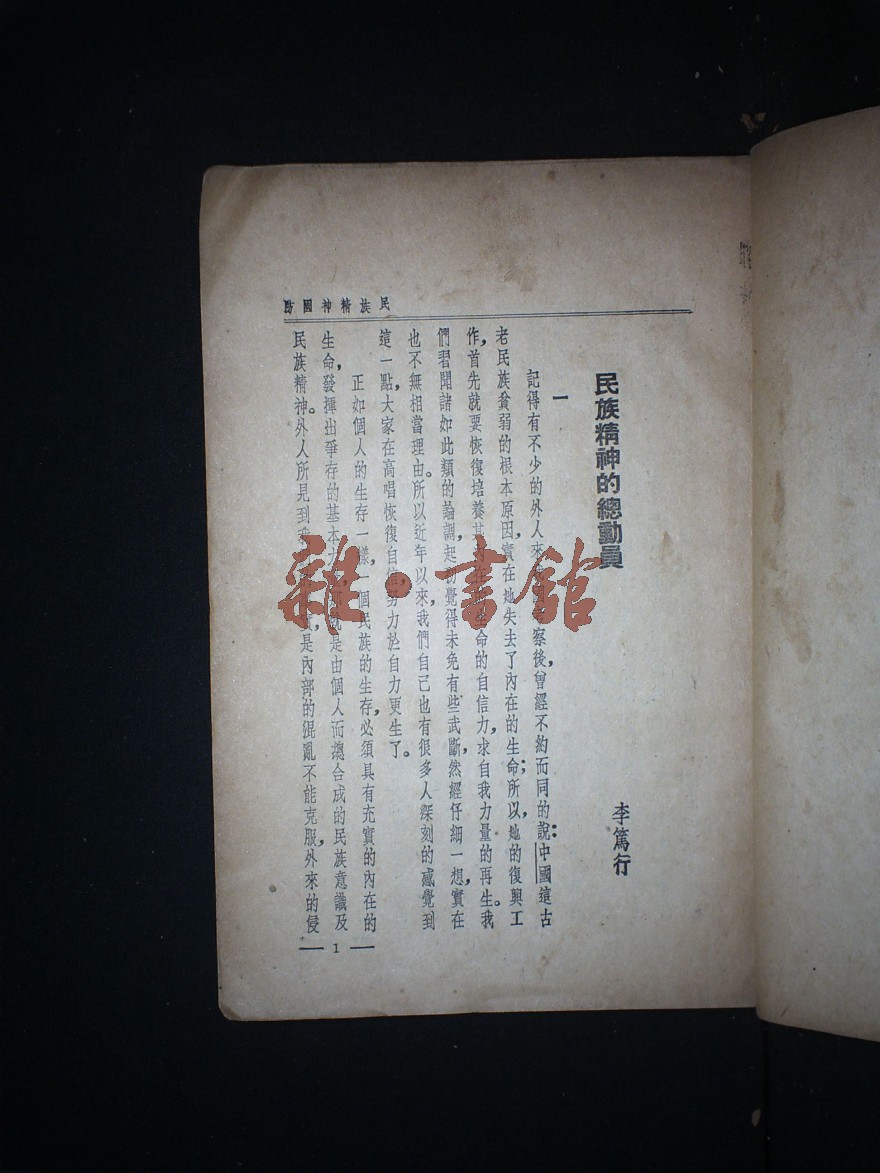 民族精神國防
民族精神的總動員
李篤行
一
記得有不少的外人來察後，曾經不約而同的說：中國這古
老民族貧弱的根本原因，實在她失去了內在的生命；所以，她的復興工
作，首先就要恢復培養其生命的自信力，求自我力量的再生。我
們習聞諸如此類的論調，起初覺得未免有些武斷，然經仔細一想，實在
也不無相當理由。所以近年以來，我們自己也有很多人深刻的感覺到
這一點，大家在高唱恢復自信，努力於自力更生了。
正如個人的生存一樣，一個民族的生存，必須具有充實的內在的
生命，發揮出爭存的基本是由個人而總合成的民族意識及
民族精神。外人所見到是內部的混亂不能克服，外來的侵
1
雜·書館